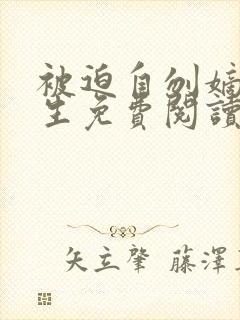 被迫自刎嫡
生免費閱讀
矢立肇 藤澤